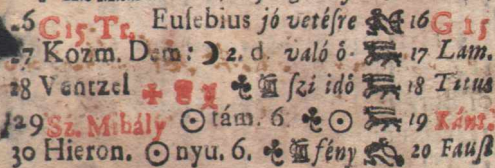 26 C 15. Tr. Euſebius jó vetéſre 16 G 15
27 Kozm. Dem: ☽ 2. d. való ö- 17 Lam.
28 Ventzel ſzi idö 18 Titus
29 Sz. Mihály ☉ tám. 6. ☉ 19 Káns.
30 Hieron. ☉ nyu. 6. fény 20 Fauſt